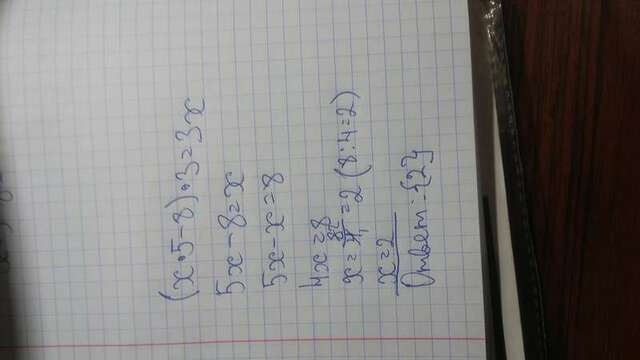 (x·5-8)·3=3x
5x-8=x
5x-x=8
4x=8
x=8/4=2 (8:4=2)
x=2
Ответ:{2}